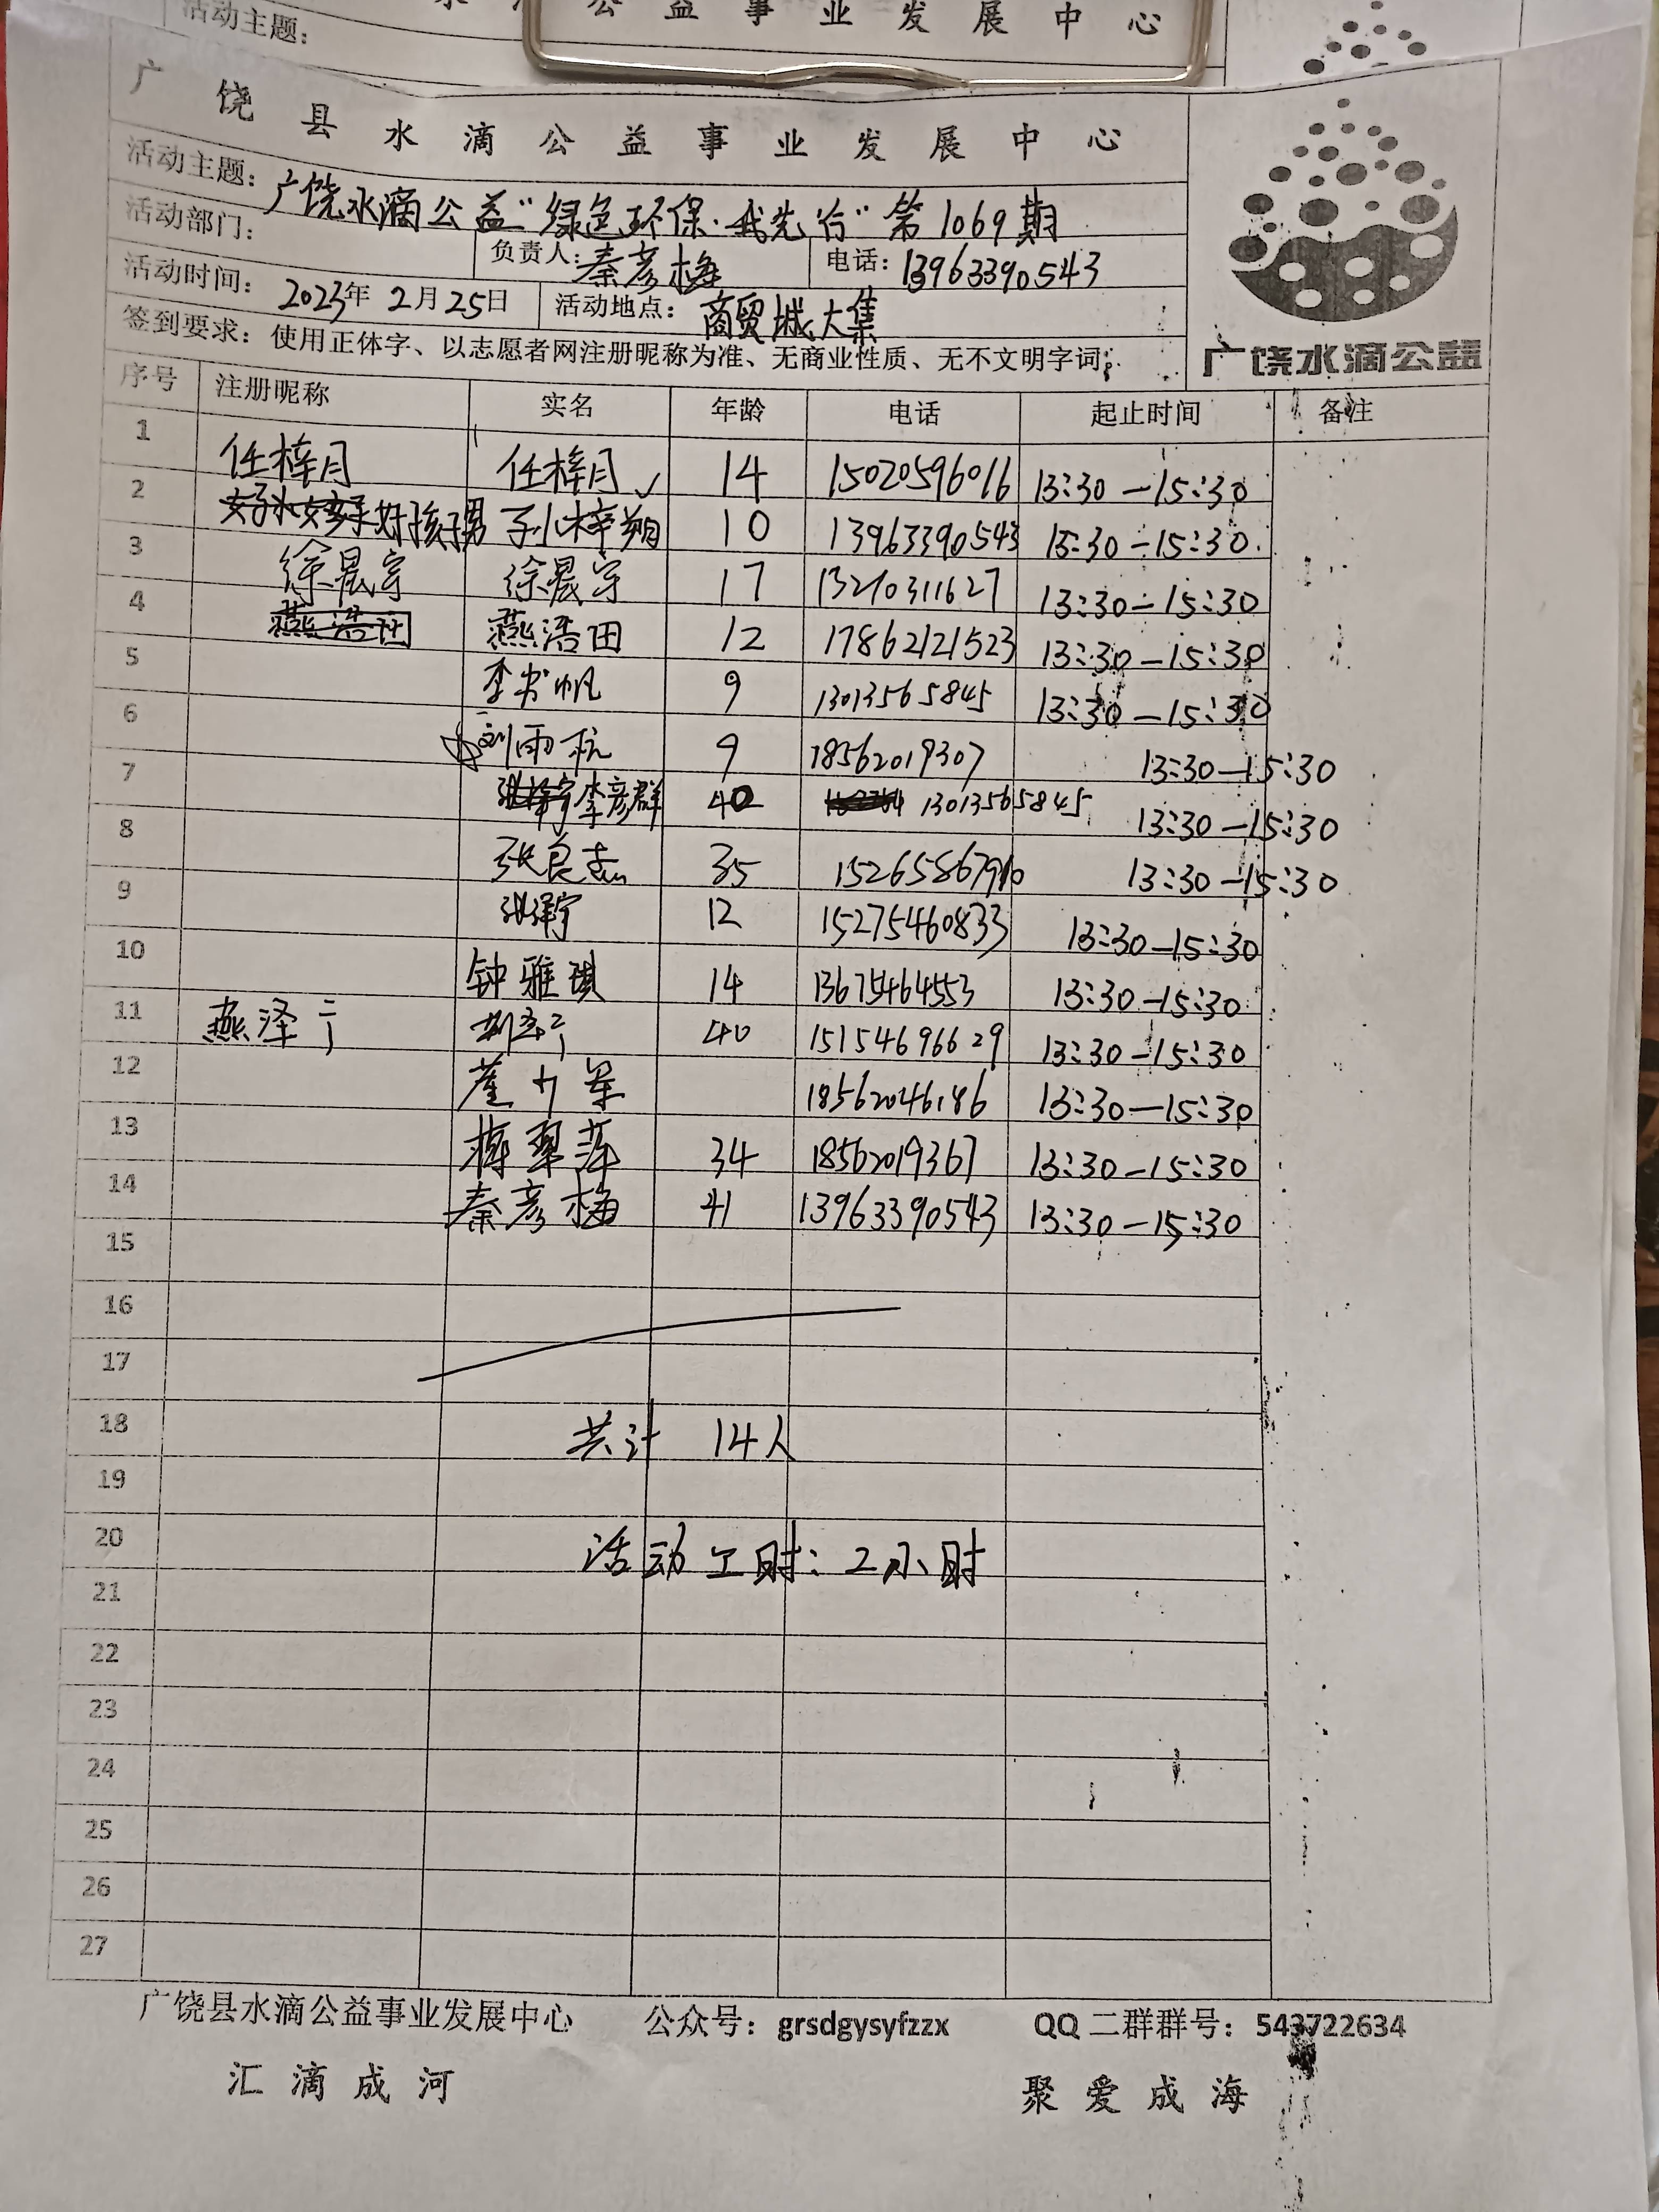 水滴公益事业发展中心
活动主题:
广饶县水滴公益事业发展中心
活动主题: 广饶水滴公益"绿色环保·我先行"第1069期
活动部门: 负责人: 秦彦梅 电话: 13963390543
活动时间: 2023年2月25日 活动地点: 商贸城大集
签到要求: 使用正体字、以志愿者网注册昵称为准、无商业性质、无不文明字词;
广饶水滴公益
序号 注册昵称 实名 年龄 电话 起止时间 备注
1 任梓月 任梓月 ✓ 14 15020596016 13:30—15:30
2 好孩子男 孙梓翔 10 13963390543 13:30—15:30.
3 徐晟宇 徐晟宇 17 13210311627 13:30—15:30
4 燕浩田 燕浩田 12 17862121523 13:30—15:30
5 李书帆 9 13013565845 13:30—15:30
6 刘雨杭 9 18562019307 13:30—15:30
7 李彦群 40 13013565845 13:30—15:30
8 张良志 35 13:30—15:30
9 12 15275460833 13:30—15:30
10 钟雅琪 14 13675464553 13:30—15:30
11 燕泽 40 15154696629 13:30—15:30
12 18562046186 13:30—15:30
13 34 18562019367 13:30—15:30
14 秦彦梅 41 13963390543 13:30—15:30
15
16
17
18 共计 14人
19
20 活动工时: 2小时
21
22
23
24
25
26
27
广饶县水滴公益事业发展中心 公众号: grsdgysyfzzx QQ二群群号: 543722634
汇滴成河 聚爱成海